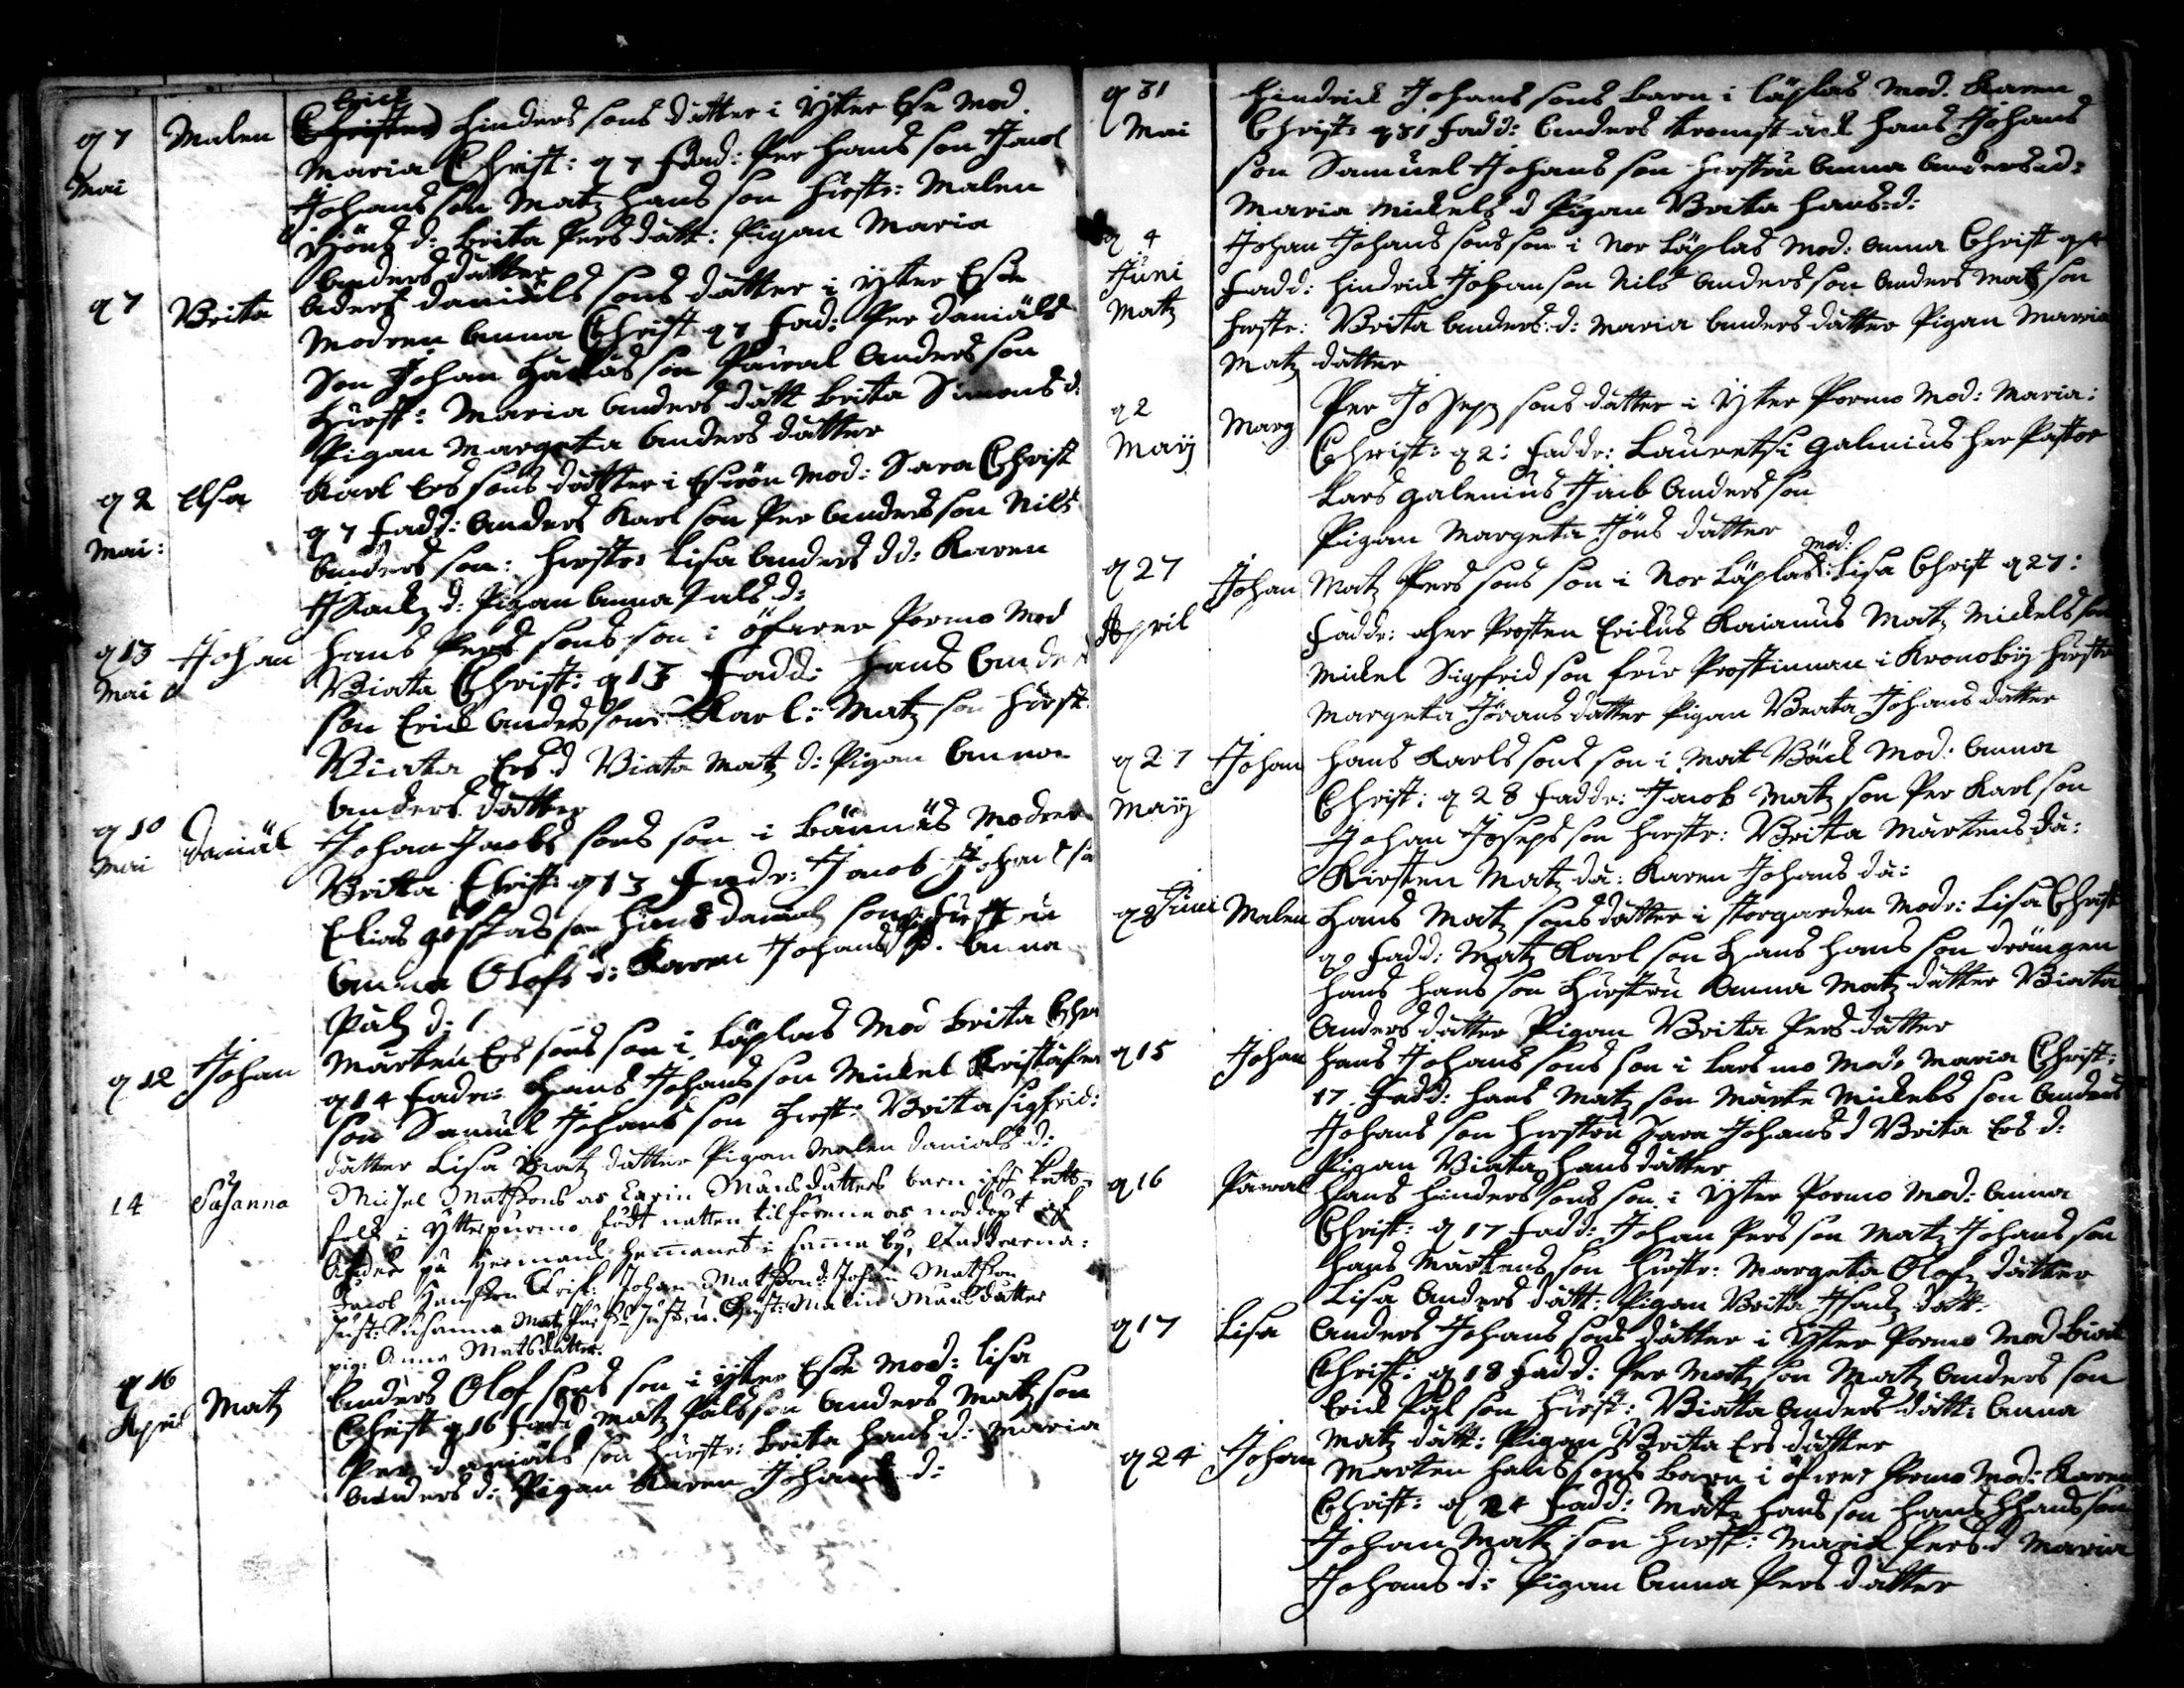 q 7 Malen Erick Christer hinders sons dåtter i Ytter Esse Mod
Mai Maria Christ: q 7 Fad: Per hans son Jacob
Johans son Matz hans son hustr: Malen
Jöns d: Brita Pers dått: Pigan Maria
Anders dåtter
q 7 Brita Anders Daniäls sons dåtter i ytter Esse
Modren Anna Christ q 7 Fad: Per Daniäls
Son Johan son Påwal Anders son
Hust: Maria Anders dått Brita Simons d:
Pigan Margeta Anders dåtter
q 2 Elsa Karl Ers sons dåtter i Mod: Sara Christ
Mai: q 7 Fadd: Anders Karl son Per Anders son Nils
Anders son: hustr: Lisa Anders dd: Karen
d: Pigan Anna d:
q 13 Johan Hans Pers sons son i öfwer Pormo Mod
Mai Biata Christ: q 13 Fadd: Hans Anders
son Erick Anders son Karl: Matz son Hust
Biata Ers d Biata Matz d: Pigan Anna
Anders dåtter
q 10 Daniäl Johan Jacobs sons son i Bännäs Modren
Mai Britta Christ: q 13 Fadr: Jacob Johans son
Elias son Hans Daniels son: Hustru
Anna Olofs d: Karen Johans d. Anna
Påls d:
q 12 Johan Mårten Ers sons son i Läplas Mod Brita Chri
q 14 Fadr: Hans Johans son Mickel Kristofer
son Samuel Johans son Hust: Britta Sigfrid:
dåtter Lisa Matz dåtter Pigan Malen Daniels d:
14 Susanna Michel Matssons as Carin Månsdatters barn
folk i Ytterpurmo födt natten tilförene as nöddöpt af
på Hermans Hemanet i samma by, Faddrarna:
Jacob Hansson Johan Matsson Johan Matsson
hust: Susanna Malin Månsdatter
pig: Anna Matsdatter.
q 16 Matz Anders Olof sons son i ytter Esse Mod: Lisa
April Christ q 16 Fadd Matz Påls son Anders Matz son
Per Daniäls son Hustr: Brita Hans d: Maria
Anders d: Pigan Karen Johans d:
q 31 Hindrick Johans sons barn i Läplas Mod. Karen
Mai Christ: q 31 Fadd: Anders Hans Johans
son Samuel Johans son Hustru Anna Anders d:
Maria Mickels d Pigan Brita Hans d:
q 4 Johan Johans sons son i Nor Läplas Mod: Anna Christ q 4
Juni Fadd: Hindrick Johan son Nils Anders son Anders Matz son
Matz hustr: Brita Anders d: Maria Anders dåtter Pigan Maria
Matz dåtter
q 2 Marg Per Joseps sons dåtter i Ytter Pormo Mod: Maria:
Maÿ Christ: q 2: Faddr: Galenius her Pastor
Lars Galenius Jacob Anders son
Pigan Margeta Jöns dåtter
q 27 Johan Matz Pers sons son i Nor Läplas mod: Lisa Christ q 27:
April Faddr: her Prosten Ericus Matz Mickels son
Mickel Sigfrid son frw Prostinnan i Kronobÿ Hustr
Margeta Görans dåtter Pigan Beata Johans dåtter
q 27 Johan Hans Karls sons son i Mod: Anna
Maÿ Christ: q 28 Faddr: Jacob Matz son Per Karl son
Johan Joseps son hustr: Britta Mårtens då:
Kirsten Matz då: Karen Johans då:
q 8 Juni Malen Hans Matz sons dåtter i Storgården Modr: Lisa Christ
q 9 Fadd: Matz Karl son Hans Hans son drängen
Hans hans son Hustru Anna Matz dåtter Biata
Anders dåtter Pigan Brita Pers dåtter
q 15 Johan Hans Johans sons son i Larsmo Mod: Maria Christ:
17. Fadd: Hans Matz son Mårten Mickels son Anders
Johans son Hustru Sara Johans d Brita Ers d:
Pigan Biata Hans dåtter
q 16 Påwal Hans Hinders sons son i Ytter Pormo Mod: Anna
Christ: q 17 Fadd: Johan Pers son Matz Johans son
Hans Mårtens son Hustr: Margeta Olofs dåtter
Lisa Anders dått: Pigan Brita Isacks dått:
q 17 Lisa Anders Johans sons dåtter i Ytter Pormo Mod
Christ: q 18 Fadd: Per Matz son Matz Anders son
Erick Pål son Hust: Biatta Anders dått: Anna
Matz dått: Pigan Brita Ers dåtter
q 24 Johan Mårten Hans sons barn i öfwer Pormo Mod: Karen
Christ: q 24 Fadd: Matz Hans son Hans Hans son
Johan Matz son Hust: Maria Pers d Maria
Johans d: Pigan Anna Pers dåtter